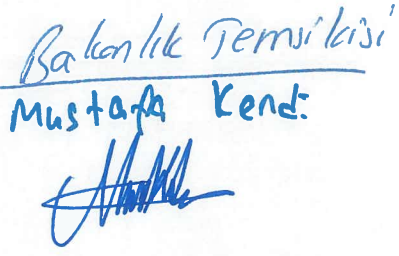 Bakanlık Temsilcisi
Mustafa Kendi